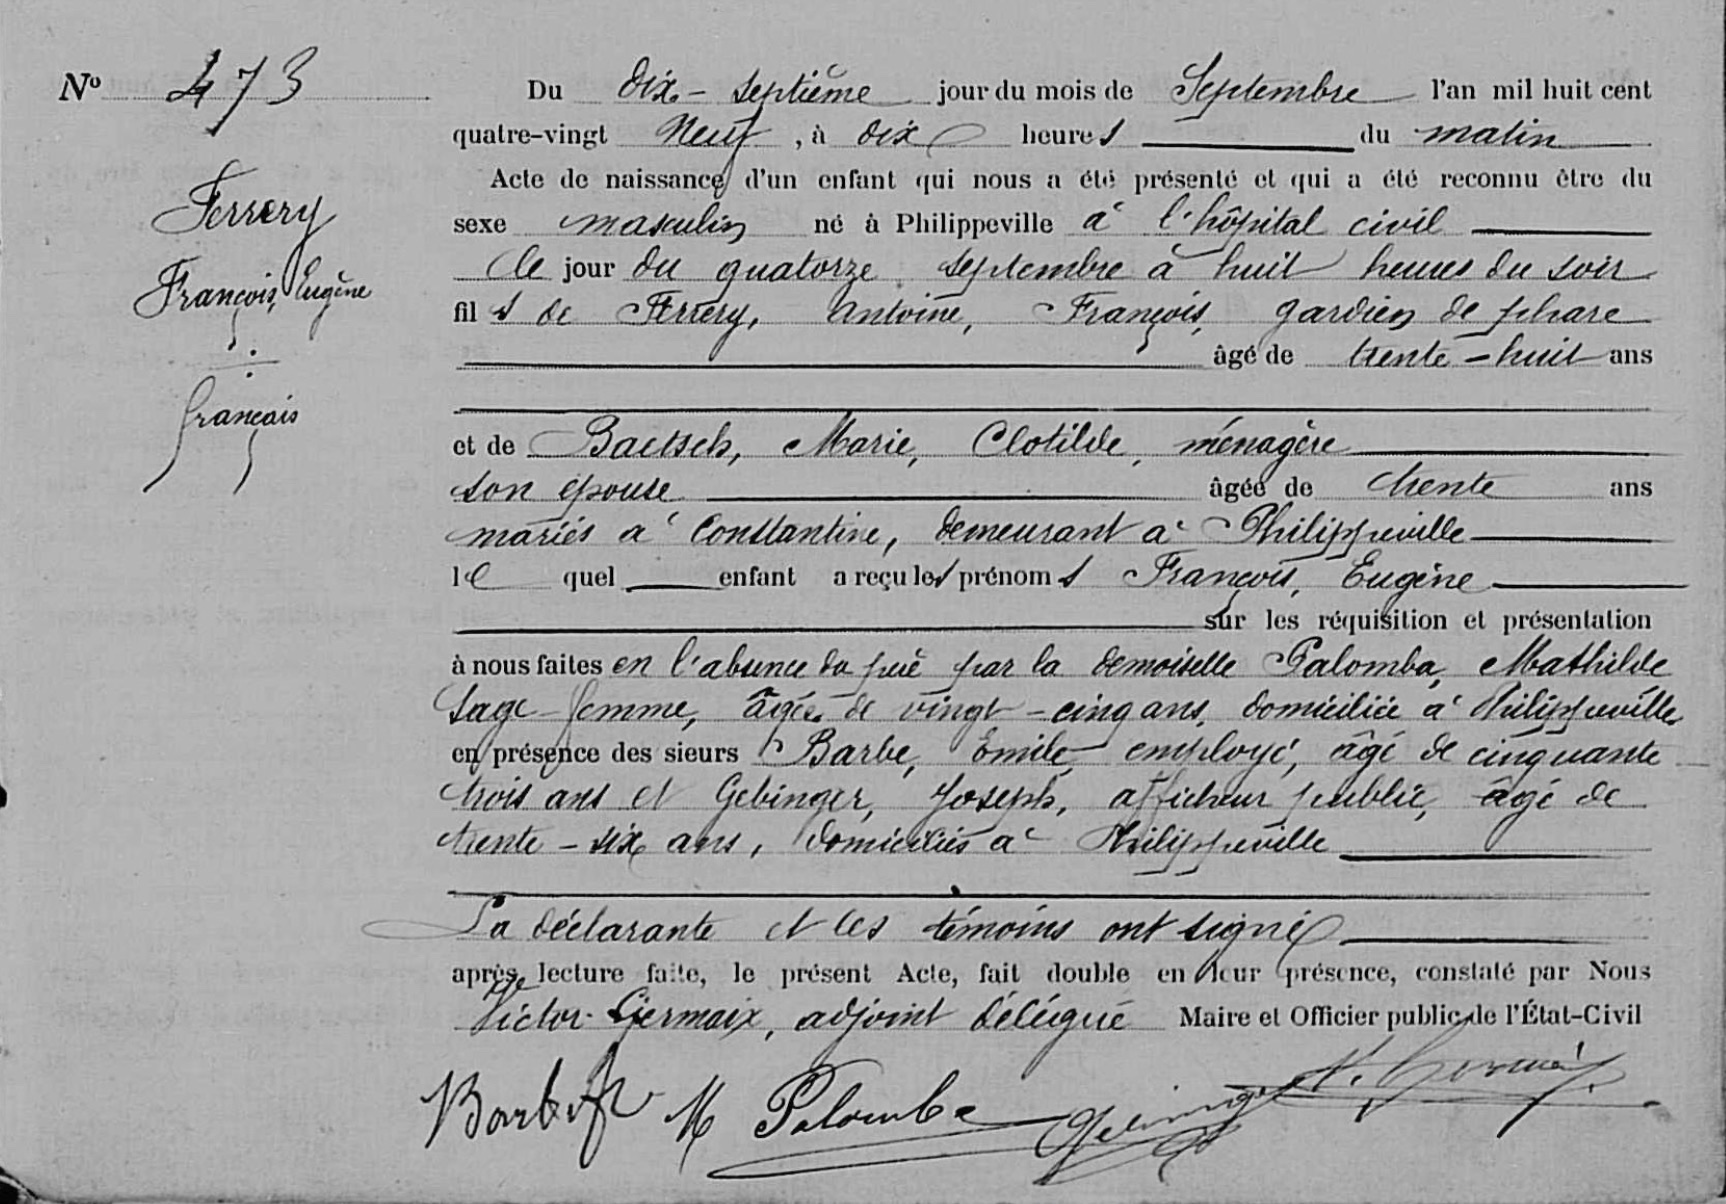 N° 473
Ferrery
François, Eugène
français
Du dix-septième jour du mois de Septembre l'an mil huit cent
quatre-vingt Neuf, à dix heures du matin
Acte de naissance d'un enfant qui nous a été présenté et qui a été reconnu être du
sexe masculin né à Philippeville à l'hôpital civil
le jour du quatorze septembre à huit heures du soir
fils de Ferrery, Antoine, François, gardien de phare
âgé de trente-huit ans
et de Baetsch, Marie, Clotilde, ménagère
son épouse âgée de trente ans
mariés à Constantine, demeurant à Philippeville
lequel enfant a reçu les prénoms François, Eugène
sur les réquisition et présentation
à nous faites en l'absence du père par la demoiselle Palomba, Mathilde
sage-femme, âgée de vingt-cinq ans, domiciliée à Philippeville
en présence des sieurs Barbe, Emile, employé, âgé de cinquante
trois ans et Gebinger, Joseph, afficheur public, âgé de
trente-six ans, domiciliés à Philippeville
La déclarante et les témoins ont signé
après lecture faite, le présent Acte, fait double en leur présence, constaté par Nous
Victor Germaix, adjoint délégué Maire et Officier public de l'État-Civil
Barbe M Palomba